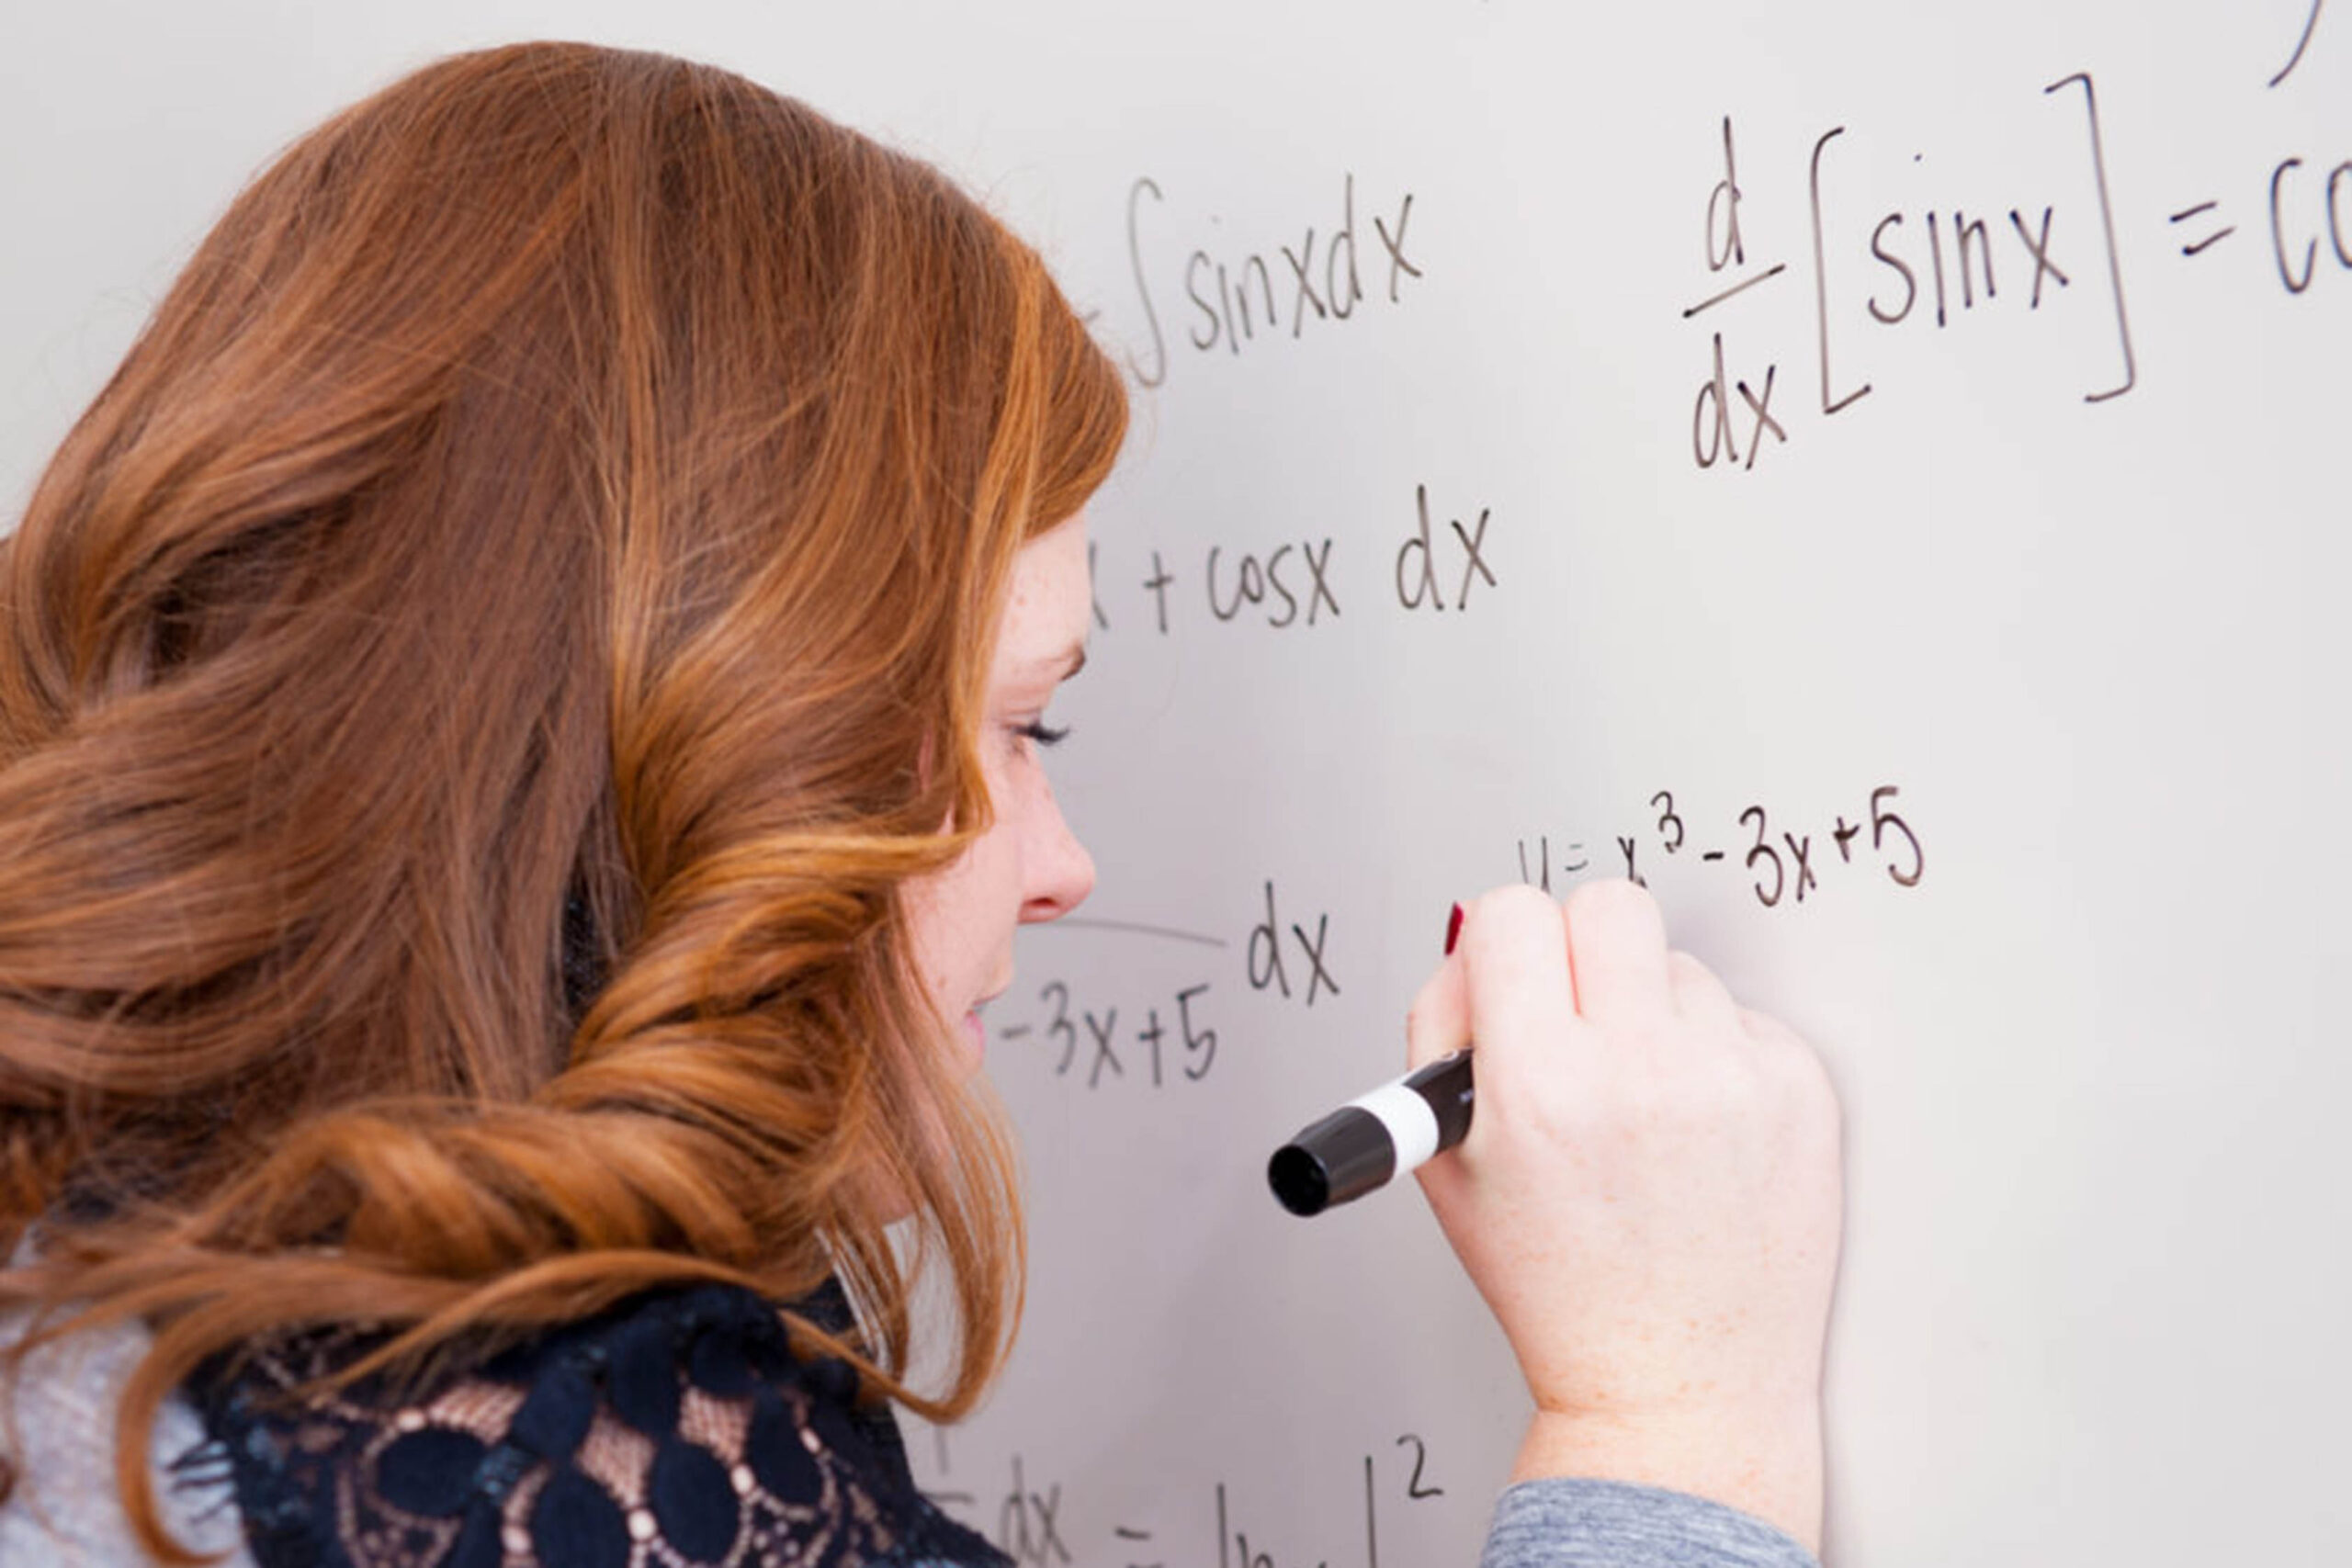 ∫ sinx dx
d/dx [sinx] = co
+ cosx dx
u = x³ - 3x + 5
dx
-3x+5
dx =